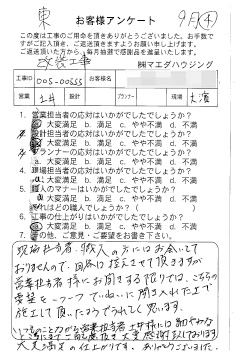 東 お客様アンケート 9月④
この度は工事のご用命を頂きありがとうございました。お手数で
すがご記入頂き、ご返送頂きますようお願い申し上げます。
ご返送頂いた方から、毎月抽選で感謝品を進呈致します。
改装工事 ㈱マエダハウジング
工事ID 005-00555 お客様名
営業 土井 設計 プランナー 現場 大濱
1. 営業担当者の応対はいかがでしたでしょうか?
a 大変満足 b 満足 c やや不満 d 不満
2. 設計担当者の応対はいかがでしたでしょうか?
a 大変満足 b 満足 c やや不満 d 不満
3. プランナーの応対はいかがでしたでしょうか?
a 大変満足 b 満足 c やや不満 d 不満
4. 現場担当者の応対はいかがでしたでしょうか?
a 大変満足 b 満足 c やや不満 d 不満
5. 職人のマナーはいかがでしたでしょうか?
a 大変満足 b 満足 c やや不満 d 不満
それはどの職人でしょうか?
6. 工事の仕上がりはいかがでしたでしょうか?
a 大変満足 b 満足 c やや不満 d 不満
7. その他、ご意見・ご要望をお書き下さい。
現場担当者、職人の方にはお会いして
おりませんので、回答は控えさせて頂きますが
営業担当者様にお聞きする限りでは、こちらの
要望を一つ一つていねいに聞き入れた上で
施工して頂いたようでうれしく思います。
いつものことながら営業担当者土井様には細やかな
大変満足の仕上がりです。ありがとうございました。